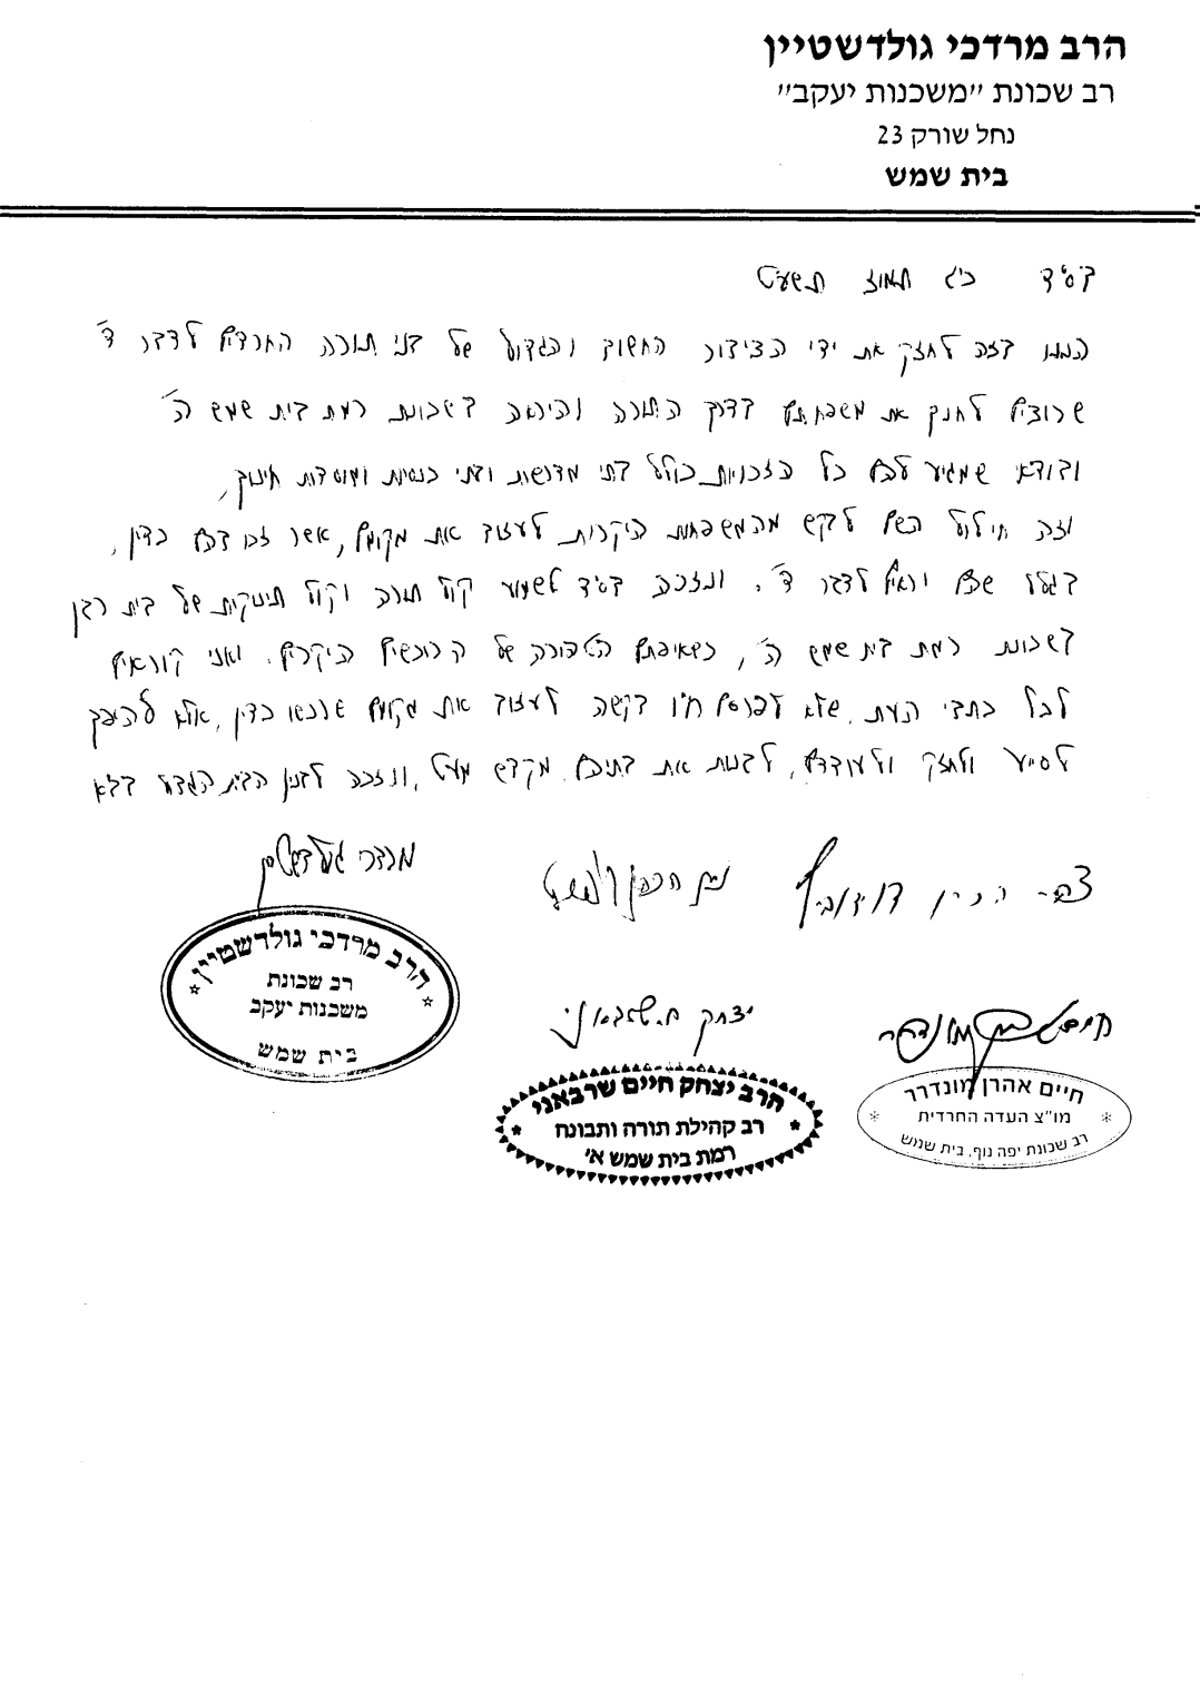 הרב מרדכי גולדשטיין
רב שכונת "משכנות יעקב"
נחל שורק 23
בית שמש
בס"ד כ"ג תמוז תשע"ט
הננו בזה לחזק את ידי הציבור החשוב והגדול של בני תורה החרדים לדבר ד'
שרוצים לחנך את משפחתם בדרך התורה והיראה בשכונת רמת בית שמש ה'
ובודאי שמגיע להם כל הזכויות כולל בתי מדרשות ובתי כנסיות ומוסדות חינוך,
וזה חילול השם לבקש מהמשפחות היקרות לעזוב את מקומם, אשר זכו בהם כדין,
בגלל שהם יראים לדבר ד'. ונזכה בס"ד לשמוע קול תורה וקול תינוקות של בית רבן
בשכונת רמת בית שמש ה', כשאיפתם הטהורה של הרוכשים היקרים. ואנו קוראים
לכל כתבי העת, שלא לפרסם ח"ו בקשה לעזוב את מקומם שרכשו כדין, אלא להיפך
לסייע ולחזק ולעודדם, לבנות את בתיהם מקדש מעט, ונזכה לבנין הבית הגדול בב"א
מרדכי גולדשטיין
הרב מרדכי גולדשטיין
רב שכונת
משכנות יעקב
בית שמש
יצחק ח. שרבאני
הרב יצחק חיים שרבאני
רב קהילת תורה ותבונה
רמת בית שמש א'
חיים אהרן מונדרר
מו"צ העדה החרדית
רב שכונת יפה נוף, בית שמש